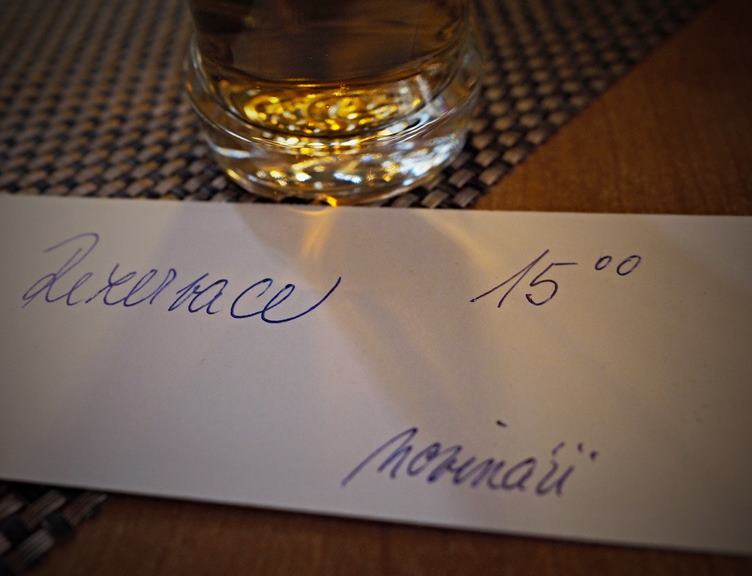 Rezervace 15⁰⁰
novináři